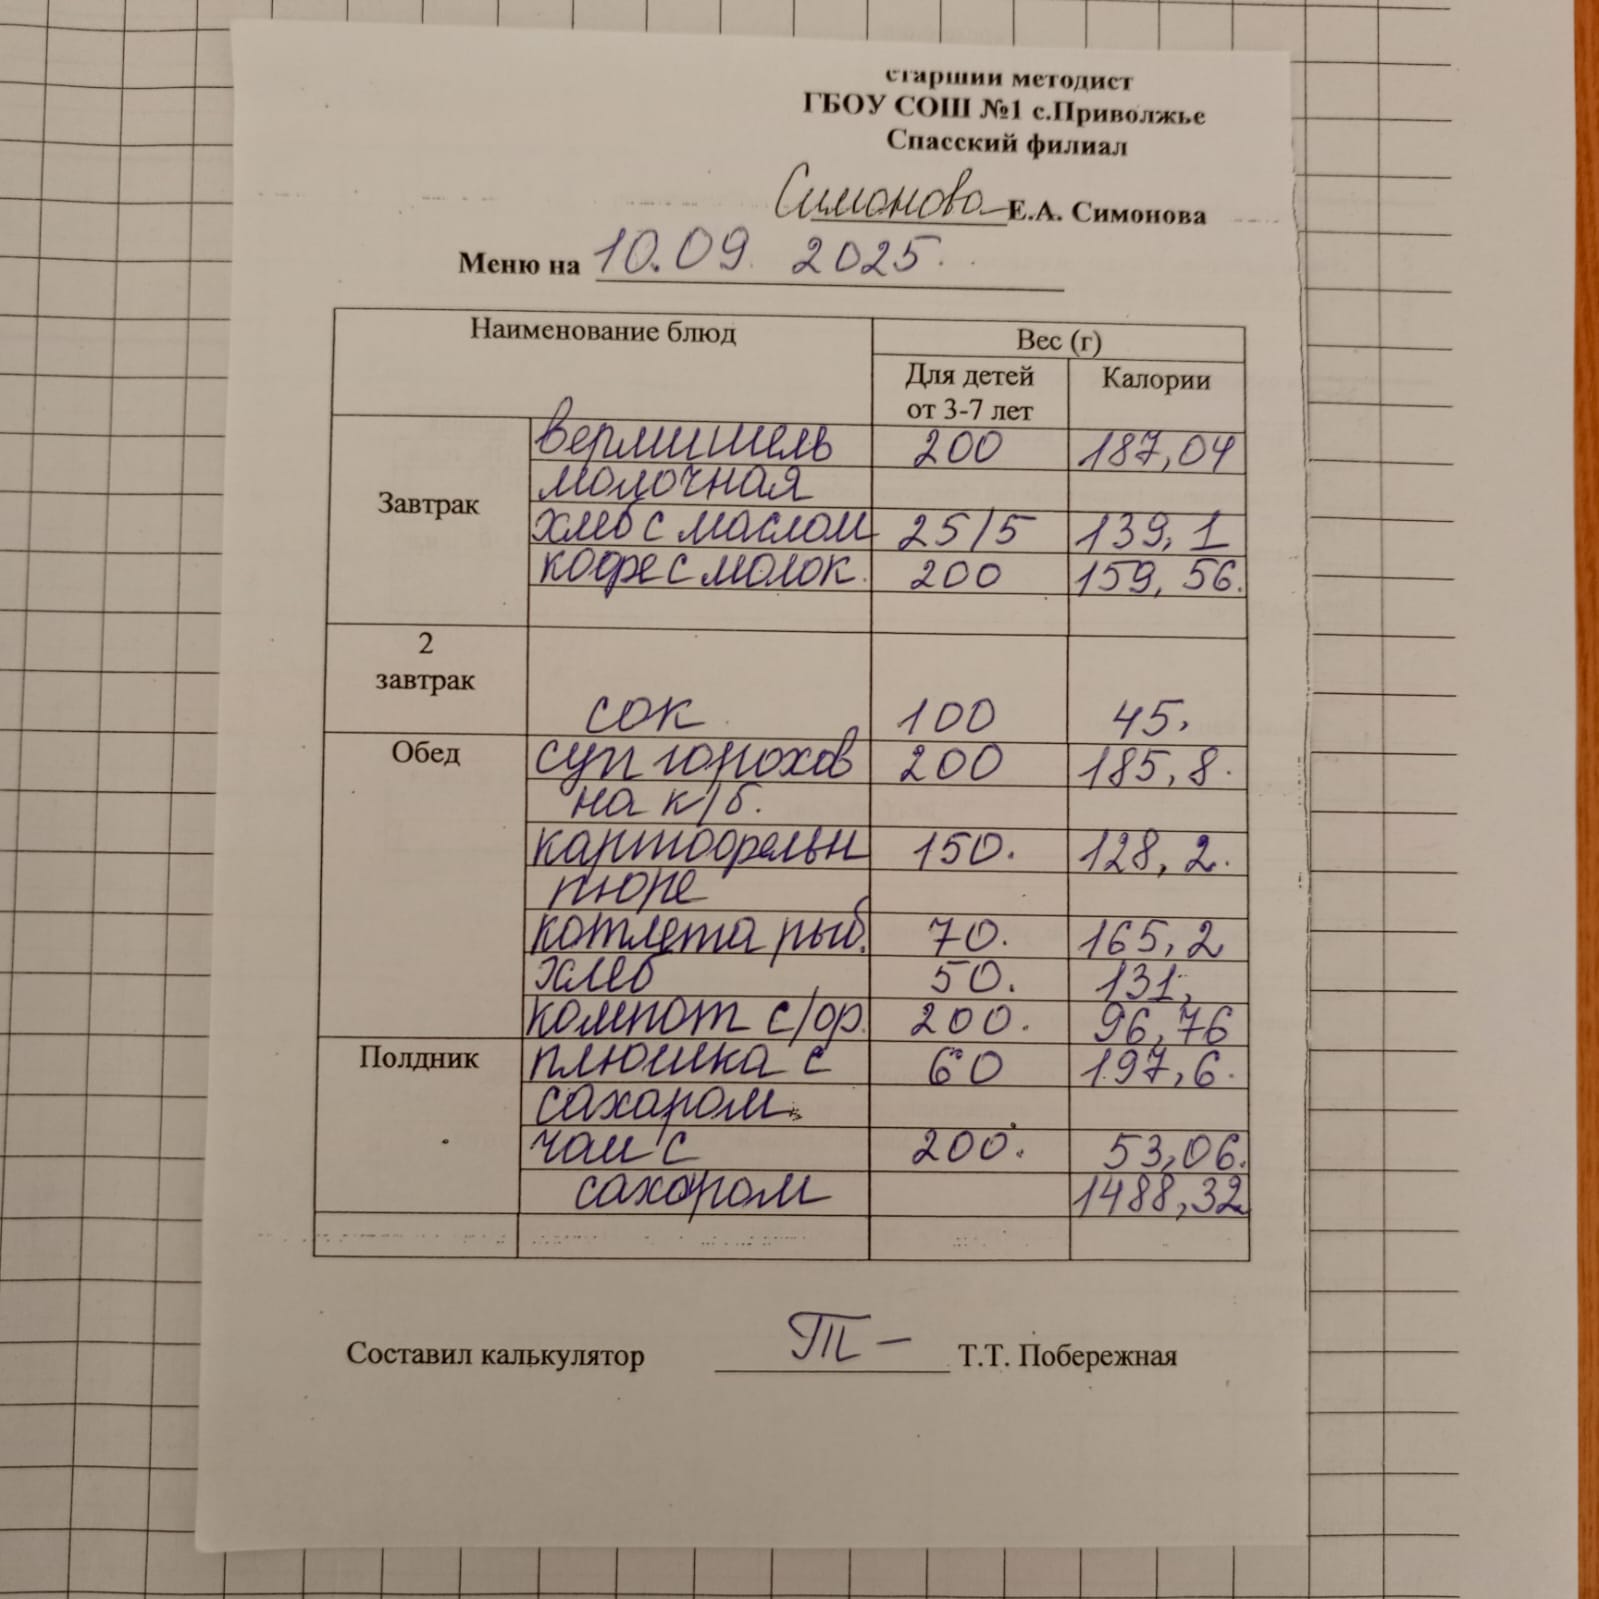 старший методист
ГБОУ СОШ №1 с.Приволжье
Спасский филиал
Симонова Е.А. Симонова
Меню на 10.09. 2025.
Наименование блюд Вес (г)
Для детей от 3-7 лет Калории
Завтрак
вермишель 200 187,04
молочная
хлеб с маслом 25/5 139,1
кофе с молок. 200 159,56.
2 завтрак
сок 100 45,
Обед суп горохов 200 185,8.
на к/б.
картофельн 150. 128,2.
пюре
котлета рыб. 70. 165,2
хлеб 50. 131,
компот с/фр. 200. 96,76
Полдник плюшка с 60 197,6.
сахаром
чай с 200. 53,06.
сахаром 1488,32
Составил калькулятор Т.Т. Побережная